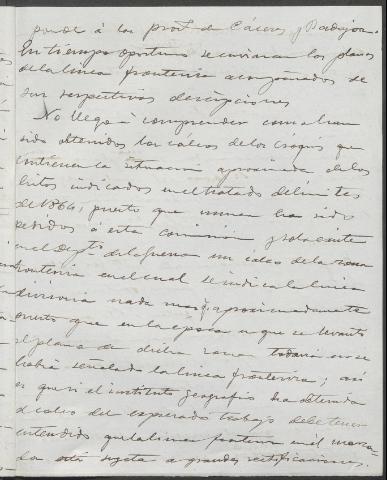 ponde á las prov.s de Cáceres y Badajoz.
En tiempo oportuno se enviaran los planos
de la línea fronteriza acompañados de
sus respectivas descripciones
No llego á comprender como han
sido obtenidos los calcos de los Cróquis que
contienen la situacion aproximada de los
hitos indicados en el tratado de límites
de 1864, puesto que nunca ha sido
pedidos á esta comision y solo existe
en el Dep.to de la Guerra un calco de la zona
fronteriza en el cual se indica la línea
divisoria nada mas aproximadamente
puesto que en la época en que se levantó
el plano de dicha zona todavia no se
habia señalado la línea fronteriza; asi
es que si el instituto geografico ha obtenido
el calco del espresado trabajo debe tener
entendido que la línea fronteriza en él marca-
da está sujeta a grandes rectificaciones.